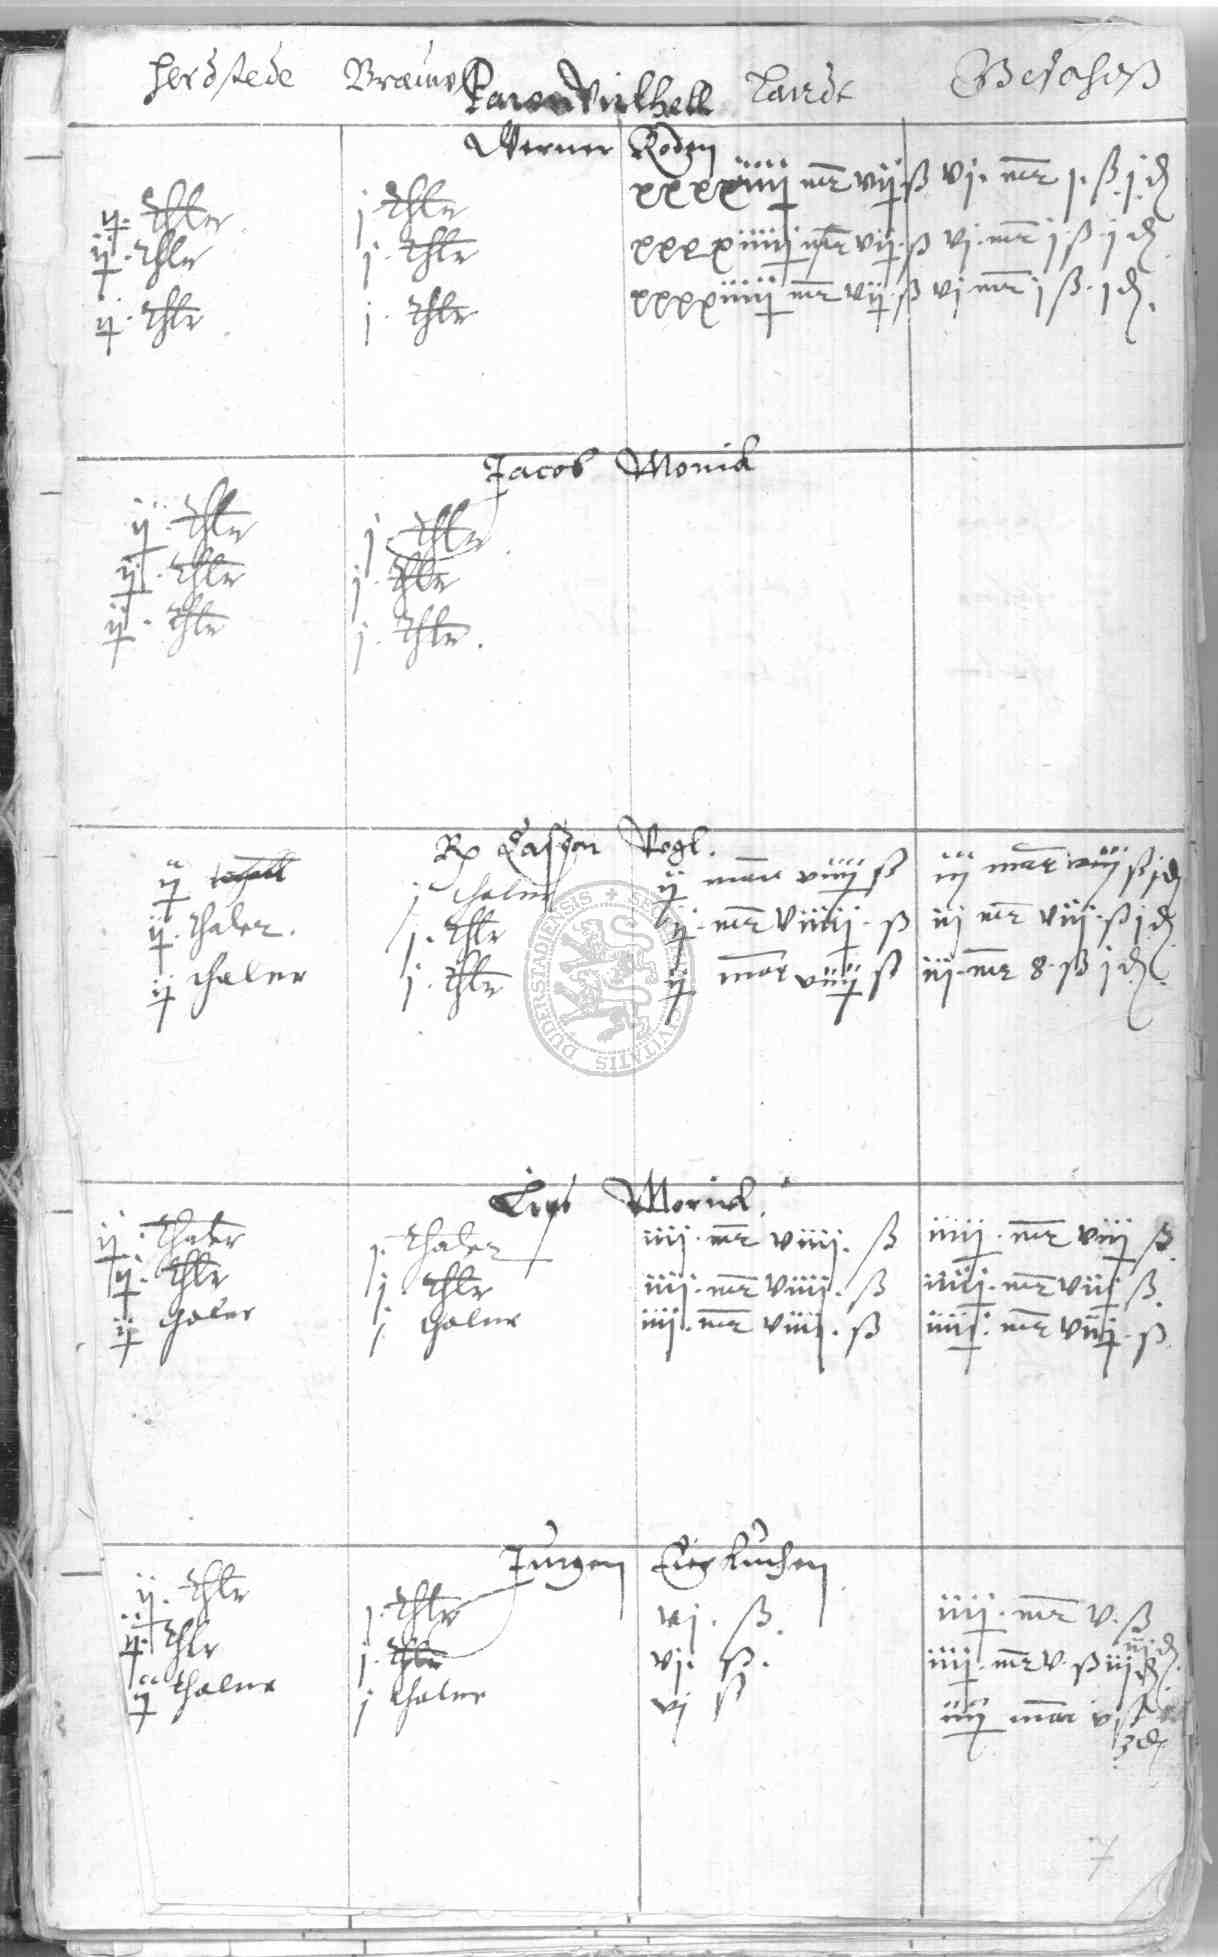 Herdstede Brauwe Landt Geschoß
Werner Roden
ij. thlr j thlr xxxxiiiij mr vij ß vj. mr j. ß. j. ₰
ij. thlr j. thlr xxxxiiiij mr vij ß vj. mr j ß. j ₰
ij. thlr j. thlr xxxxiiiij mr vij ß vj mr j ß. j ₰.
Jacob
ij. thlr j. thlr
ij. thlr j. thlr
ij. thlr j. thlr.
Caspar Vogt.
ij j thaler ij mar viiij ß iij mar ß j ₰
ij. thaler. j. thlr ij. mr viiij. ß iij mr viij. ß j ₰
ij thaler j. thlr ij mar viiij ß iij. mr 8. ß j ₰
Lips
ij. thaler j. thaler iiij. mr viiij. ß iiiij. mr viij ß.
ij. thlr j thlr iiij. mr viiij. ß iiiij. mr viij ß.
ij thaler j thaler iiij. mr viiij. ß iiiij. mr viij. ß.
Jurgen Eigkuchen
ij. thlr j. thlr vj. ß. iiiij. mr v. ß
iij ₰.
ij. thlr j. thlr vj. ß. iiiij. mr v. ß iij ₰
ij thaler j thaler vj ß iiiij mar v ß
3 ₰.
SIGILLUM CIVITATIS DUDERSTADIENSIS
7